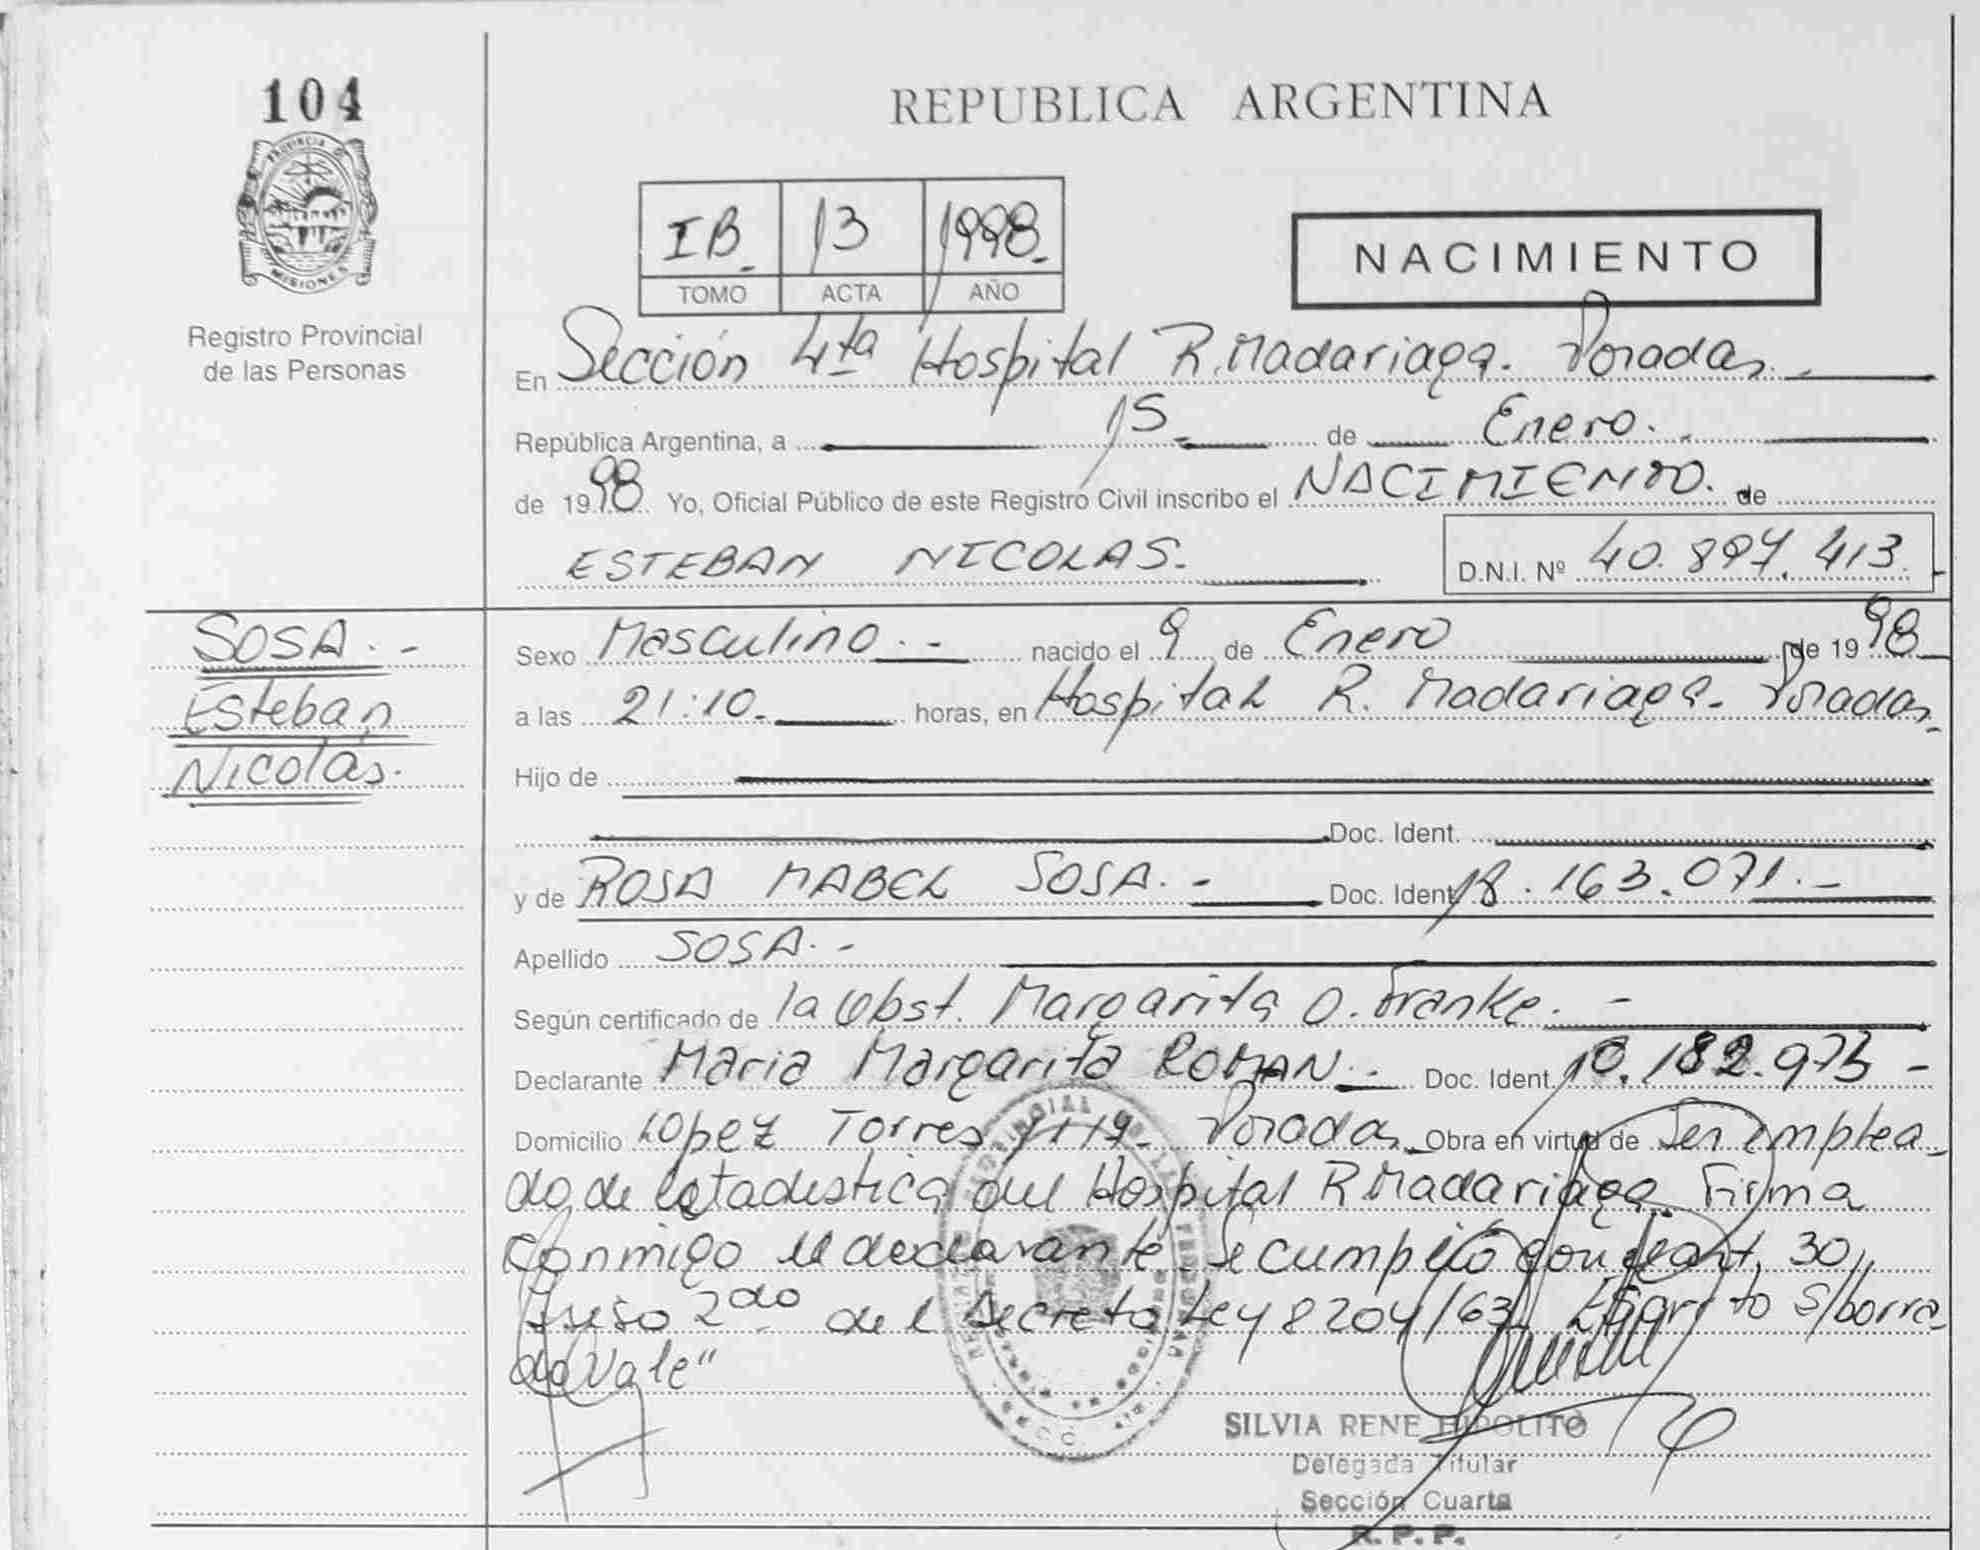 104
REPUBLICA ARGENTINA
PROVINCIA DE
MISIONES
IB 13 1998
TOMO ACTA AÑO
NACIMIENTO
Registro Provincial
de las Personas
En Sección 4ta Hospital R. Madariaga. Posadas.
República Argentina, a 15 de Enero.
de 1998 Yo, Oficial Público de este Registro Civil inscribo el NACIMIENTO. de
ESTEBAN NICOLAS. D.N.I. Nº 40.897.413.
SOSA.-
Esteban
Nicolás.
Sexo Masculino.- nacido el 9 de Enero de 1998
a las 21:10. horas, en Hospital R. Madariaga. Posadas.
Hijo de
Doc. Ident.
y de ROSA MABEL SOSA.- Doc. Ident. 18.163.071.-
Apellido SOSA.-
Según certificado de la Obst. Margarita O. Franke.-
Declarante Maria Margarita ROMAN.- Doc. Ident. 10.182.973-
Domicilio Lopez Torres 1119- Posadas Obra en virtud de Ser emplea
do de Estadistica del Hospital R. Madariaga. Firma
Conmigo el declarante. Se cumplió con el art. 30
Inciso 2do del Decreto Ley 8204/63. Escrito s/borra
do Vale"
SILVIA RENE HIPOLITO
Delegada Titular
Sección Cuarta
R.P.P.